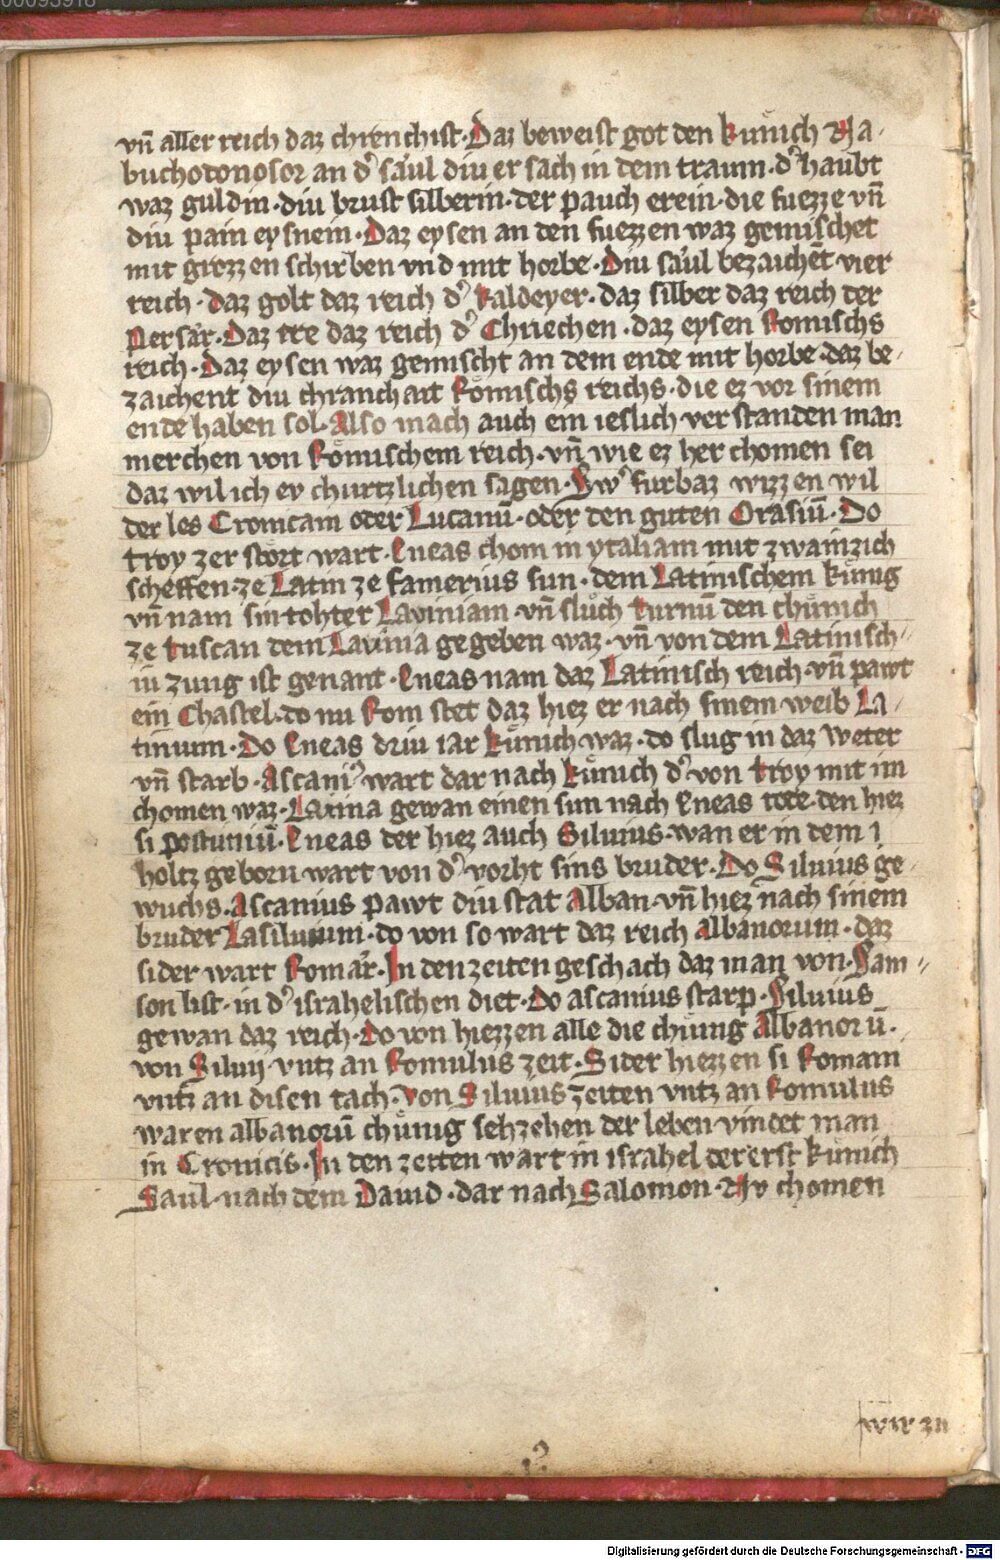 00093918
vn̄ aller reich daz chrenchist · Daz beweist got den kuͤnich Na-
buchodonosor an dˀ saͤul diu er sach in dem traum · dˀ haubt
waz guldin · diu brust silberin · der pauch erein · die fuezze vn̄
diu pain eysnein · Daz eysen an den fuezzen waz gemischet
mit grozzen schirben vnd mit horbe · Diu saͤul bezaichēt vier
reich · daz golt daz reich dˀ kaldeyer · daz silber daz reich der
Persaͤr · Daz ere daz reich dˀ Chriechen · daz eysen Romischs
reich · Daz eysen waz gemischt an dem ende mit horbe · daz be-
zaichent diu chranchait Roͤmischs reichs · die ez vor sinem
ende haben sol · Also mach auch ein ieslich verstanden man
merchen von Roͤmischem reich · vn̄ wie ez her chomen sei
daz wil ich ev churtzlichen sagen · Swˀ furbaz wizzen wil
der les Cronicam oder Lucanū · oder den guten Orasiū · Do
troy zerstoͤrt wart · Eneas chom in ytaliam mit zwainzich
scheffen · ze Latin ze famerius sun · dem Latinischem kuͤnig
vn̄ nam sin tohter Lauiniam · vn̄ sluͦch turnū den chuͤnich
ze tuscan dem Lauina gegeben waz · vn̄ von dem Latinisch-
iu zung ist genant · Eneas nam daz Latinisch reich · vn̄ pawt
ein Chastel · do nu Rom stet daz hiez er nach sinem weib La-
tinum · Do Eneas driu iar kuͤnich waz · do slug in daz weter
vn̄ starb · Ascaniˀ wart dar nach kuͤnich dˀ von troy mit im
chomen waz · Lauina gewan einen sun nach Eneas tode · den hiez
si postumū · Eneas der hiez auch Siluius · wan er in dem
holtz geborn wart von dˀ vorht sins bruder · Do Siluius ge-
wuchs · Ascanius pawt diu stat Alban · vn̄ hiez nach sinem
bruder Lasiluium · do von so wart daz reich albanorum · daz
sider wart Romaͤr · In den zeiten geschach daz man von Sam-
son list · in dˀ israhelischen diet · Do ascanius starp · Siluius
gewan daz reich · Do von hiezzen alle die chuͤnig Albanorū ·
von Siluij vntz an Romulus zeit · Sider hiezzen si Romani
vntz an disen tach · Von Siluius zeiten vntz an Romulus
waren albanorū chuͤnig sehzehen der leben vindet man
in Cronicis · In den zeiten wart in israhel der erst kuͤnich
Saul · nach dem Dauid · dar nach Salomon · Nv chomen
wir zu
Digitalisierung gefördert durch die Deutsche Forschungsgemeinschaft - DFG